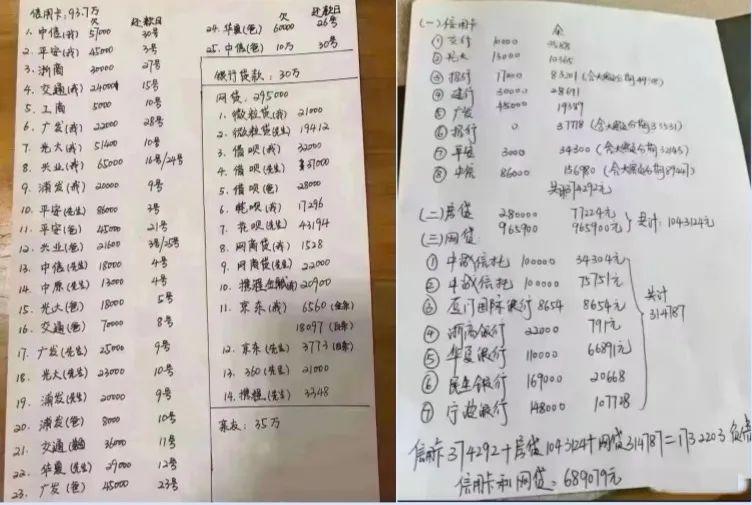 信用卡:93.7万
欠 还款日
1. 中信(我) 57000 30号
2. 平安(我) 45000 3号
3. 浙商 30000 27号
4. 交通(我) 24000 15号
5. 工商 5000 10号
6. 广发(我) 22000 28号
7. 光大(我) 51400 10号
8. 兴业(我) 65000 16号/24号
9. 浦发(我) 20000 9号
10. 平安(先生) 86000 3号
11. 平安(爸) 45000 21号
12. 兴业(爸) 21600 3号/25号
13. 中信(先生) 18000 4号
14. 中原(先生) 13000 4号
15. 光大(爸) 18000 5号
16. 交通(爸) 70000 8号
17. 广发(先生) 25000 9号
18. 光大(先生) 23000 10号
19. 浦发(先生) 20000 9号
20. 浦发(爸) 8000 10号
21. 交通 36000 11号
22. 华夏(先生) 29000 12号
23. 广发(爸) 45000 23号
欠 还款日
24. 华夏(爸) 60000 26号
25. 中信(爸) 10万 30号
银行贷款:30万
网贷:295000
1. 微粒贷(我) 21000
2. 微粒贷(先生) 19412
3. 借呗(我) 32000
4. 借呗(先生) 37000
5. 借呗(爸) 28000
6. 花呗(我) 17296
7. 花呗(先生) 43194
8. 网商贷(我) 1528
9. 网商贷(先生) 22000
10. 携程金融(我) 20900
11. 京东(我) 6560(金条)
18097(白条)
12. 京东(先生) 3773(白条)
13. 360(先生) 21000
14. 携程(先生) 3348
亲友:35万
(一)信用卡 余
① 交行 10000
② 光大 13000 10365
③ 招行 17000 83201(含大额分期49908)
④ 建行 30000 28691
⑤ 广发 45000 19389
⑥ 招行 0 37778(含大额分期33531)
⑦ 平安 3000 34300(含大额分期32143)
⑧ 中信 86000 156980(含大额分期89247)
共374292元
(二)房贷 280000 77224元
965900 965900元 共计:1043124元
(三)网贷
① 中诚信托 100000 34304元
② 中诚信托 100000 75751元
③ 厦门国际银行 8654 8654元
④ 浙商银行 22000 791元
⑤ 华夏银行 110000 66891元
⑥ 民生银行 169000 20668
⑦ 宁波银行 148000 107728
共计
314787
信用卡374292+房贷1043124+网贷314787=1732203负债
信用卡和网贷:689079元